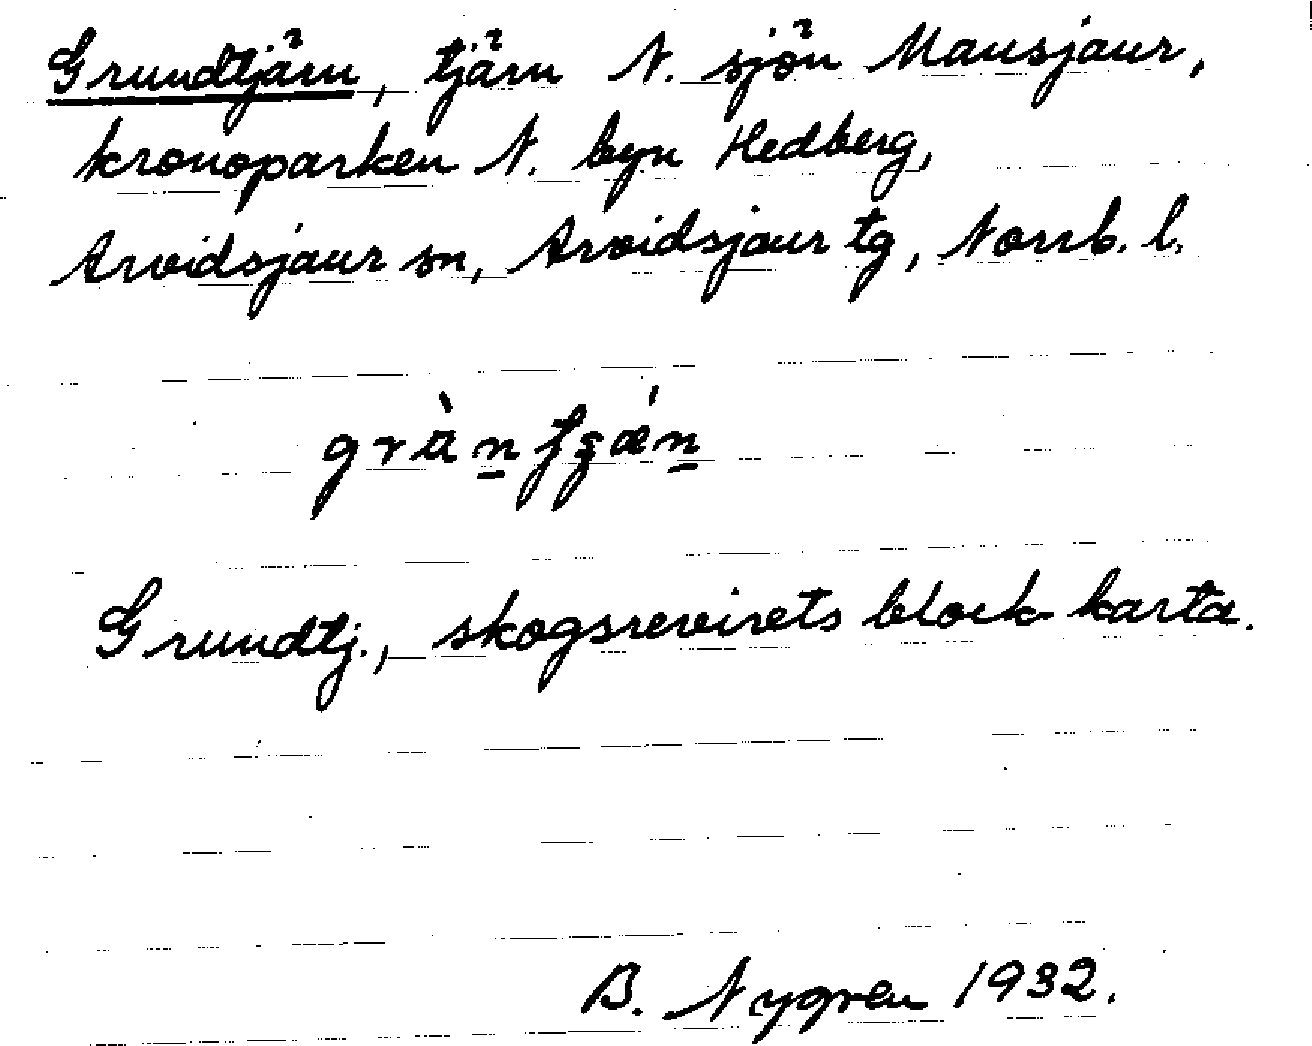 Grundtjärn, tjärn N. sjön Mausjaur,
kronoparken N. byn Hedberg,
Arvidsjaur sn, Arvidsjaur tg, Norrb. l.
Grundtj., skogsrevirets block karta.
B. Nygren 1932.